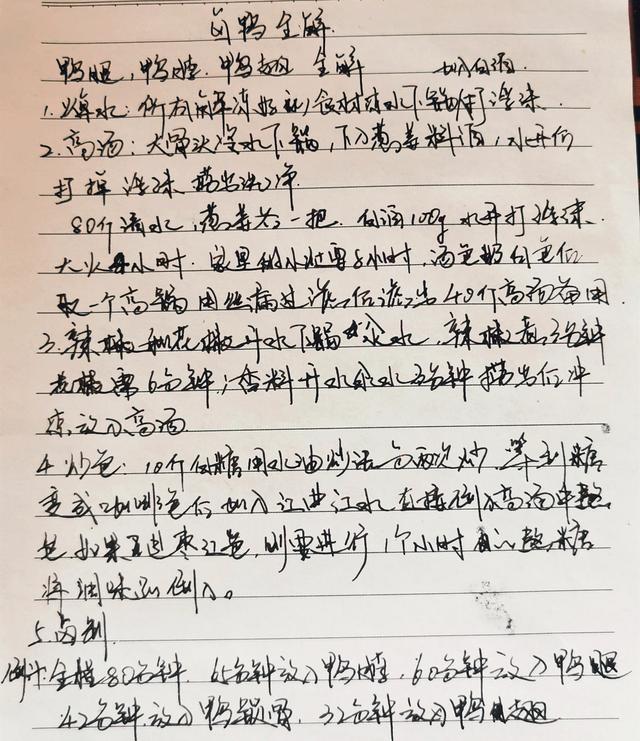 卤鸭全解
鸭腿，鸭腔，鸭翅 全解 加白酒
1.焯水：所有解冻好的食材冷水下锅打浮沫
2.高汤：大骨头冷水下锅，下入葱姜料酒，水开后
打掉浮沫 捞出洗净
80斤清水，葱姜各一把，白酒100g 水开打浮沫
大火 小时 小火 8小时，汤色奶白色后
取一个高锅用丝漏过滤后 出40斤高汤备用
3.辣椒和花椒开水下锅氽水，辣椒煮3分钟
花椒需6分钟；香料开水氽水3分钟捞出后冲
凉放入高汤
4.炒色：10斤白糖用水油炒法分两次炒 等到糖
变成 色后加入红曲红水直接倒入高汤中整
色如果 枣红色，则要进行1个小时 整糖
将调味 倒入。
5.卤制
倒计 全程80分钟，65分钟放入鸭腔，60分钟放入鸭腿
42分钟放入鸭锁骨，32分钟放入鸭翅